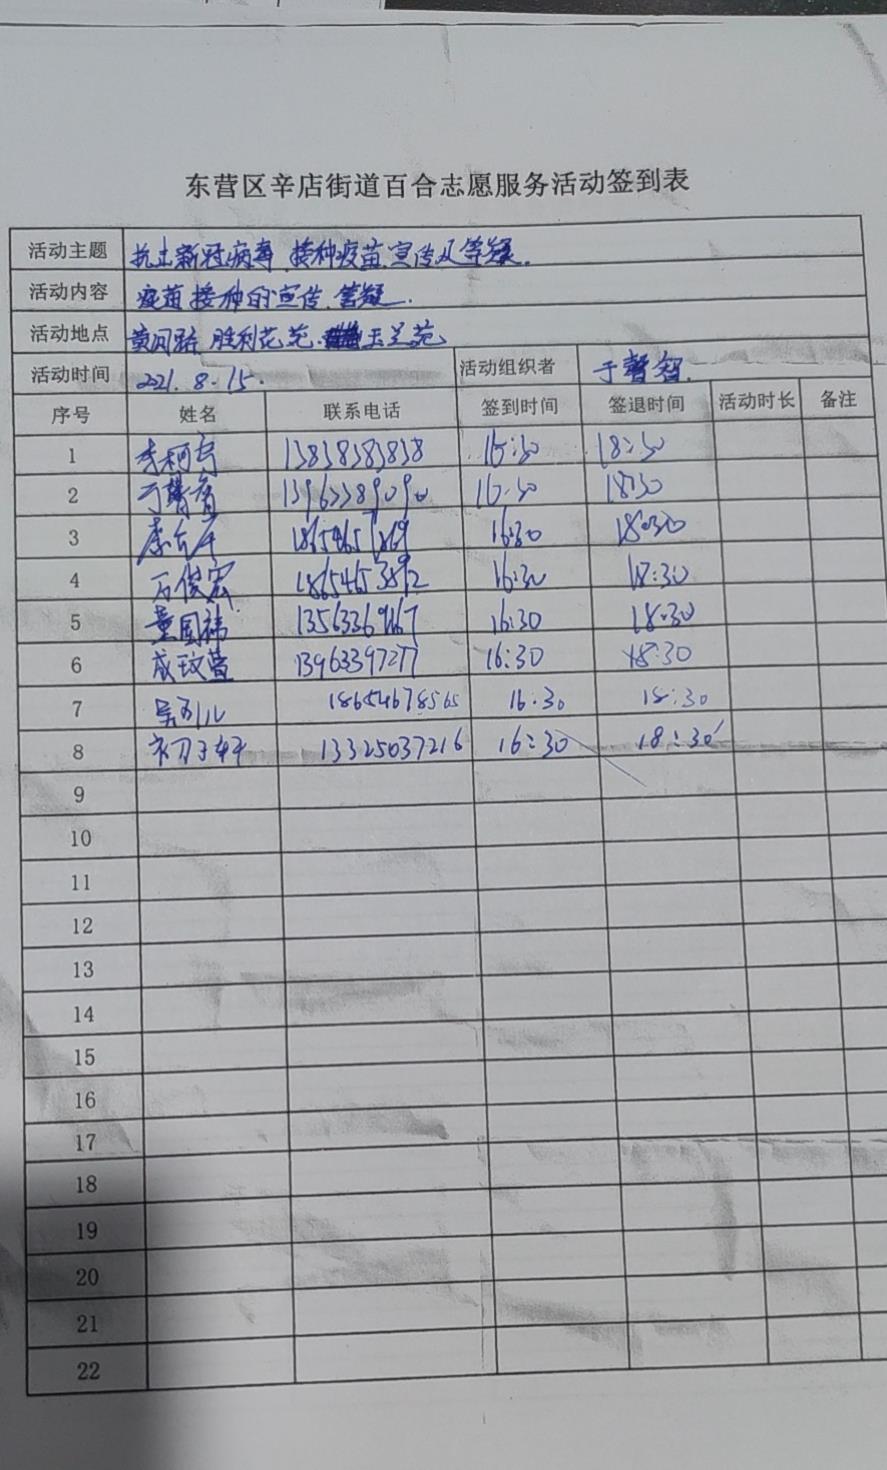 东营区辛店街道百合志愿服务活动签到表
活动主题 抗击新冠病毒,接种疫苗,宣传及答疑.
活动内容 疫苗接种的宣传.答疑.
活动地点 黄河路 胜利花苑. 玉兰苑
活动时间 2021.8.15. 活动组织者 于馨智.
序号 姓名 联系电话 签到时间 签退时间 活动时长 备注
1 李柯 13838383838 16:30 18:30
2 于馨智 13963389090 16:30 18:30
3 16:30 18:30
4 万俊宏 18654653892 16:30 18:30
5 董国祎 16:30 18:30
6 成玟萱 13963397277 16:30 18:30
7 吴 18654678565 16:30 18:30
8 初子轩 13325037216 16:30 18:30
9
10
11
12
13
14
15
16
17
18
19
20
21
22